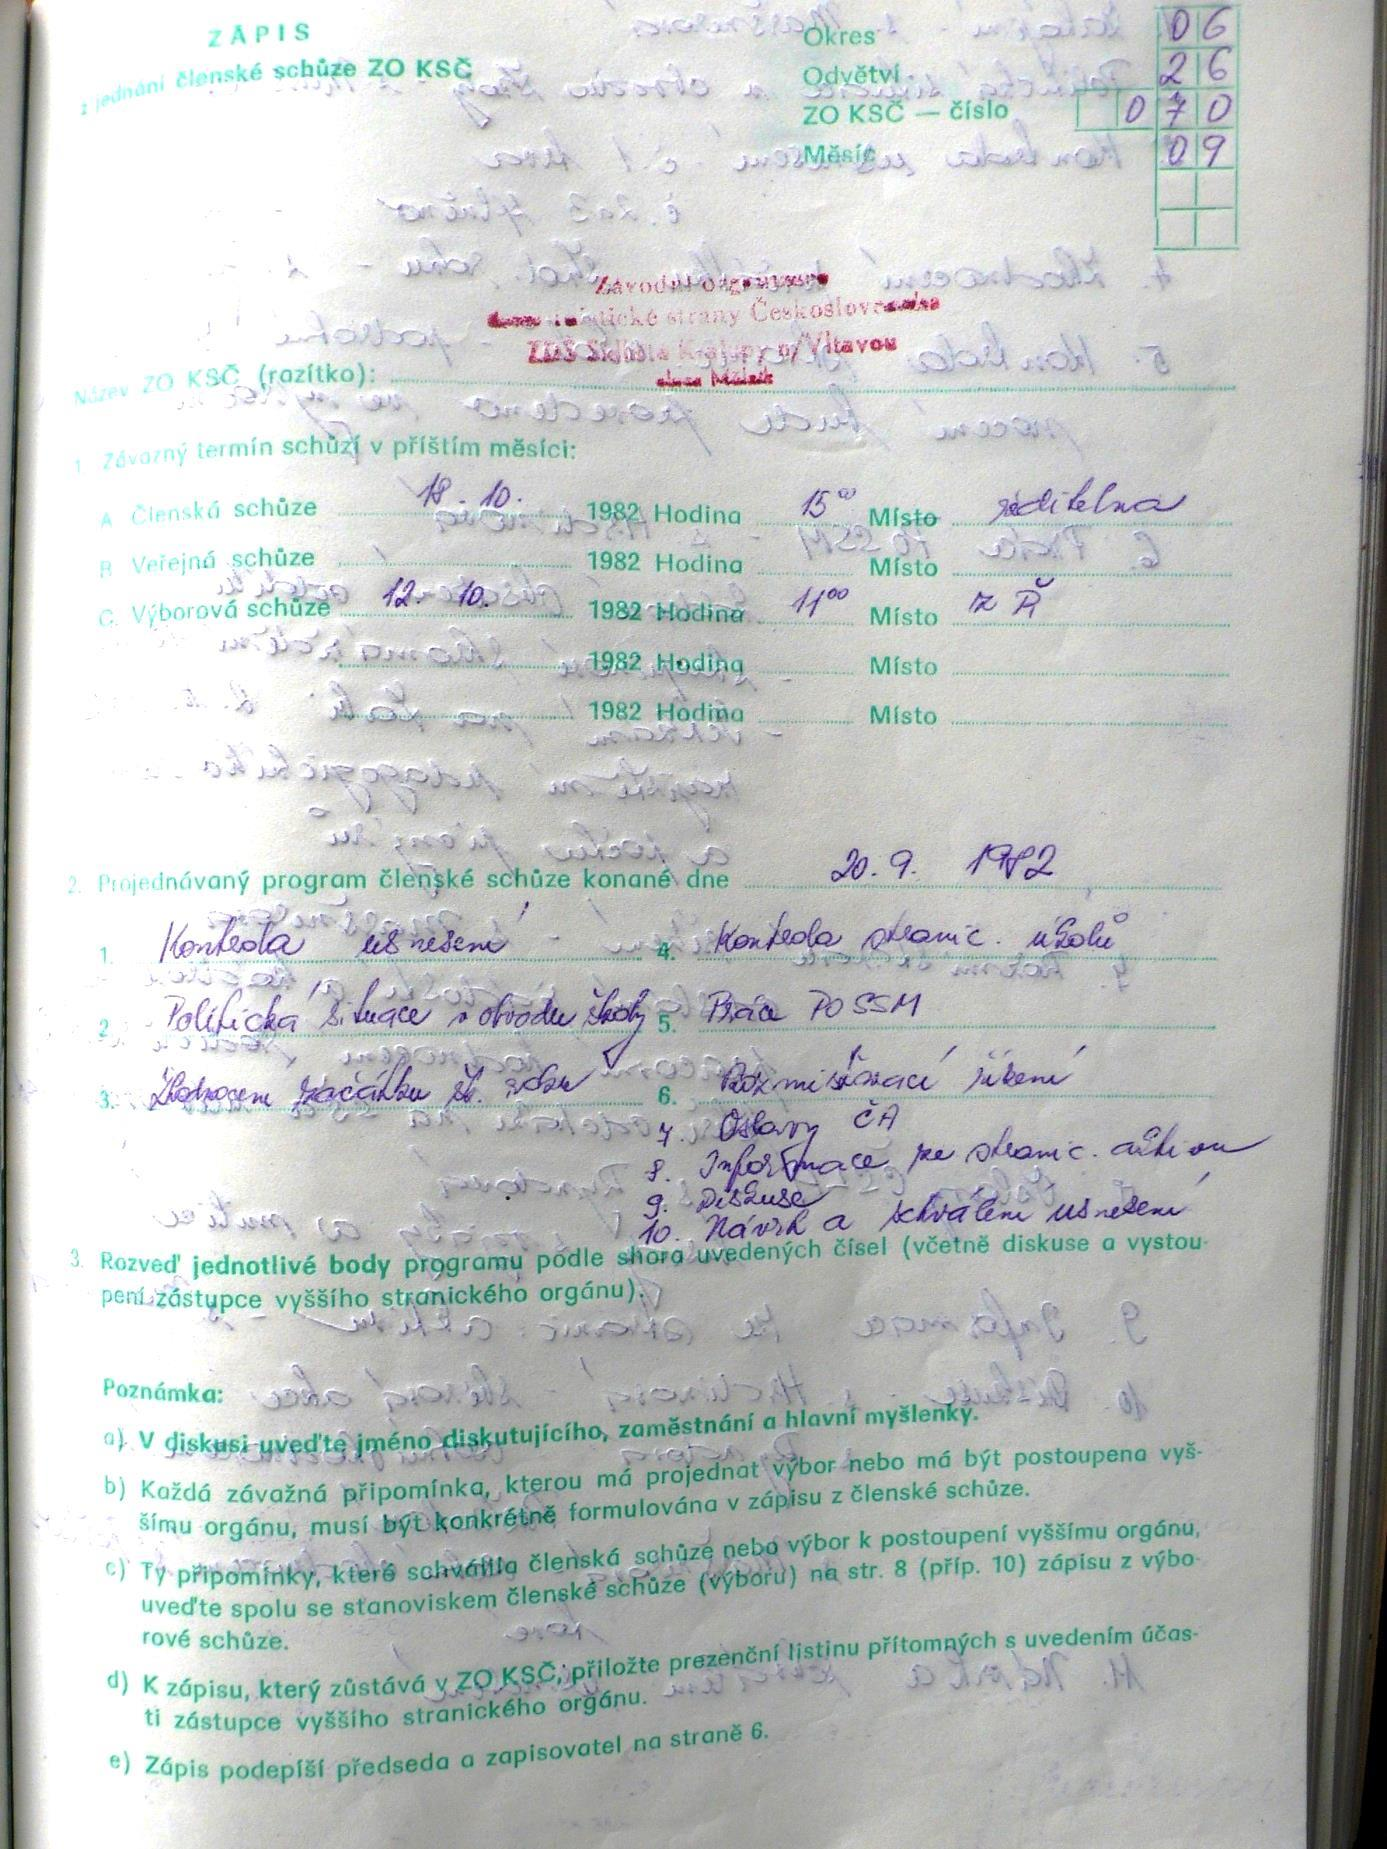 ZÁPIS
z jednání členské schůze ZO KSČ
Okres 06
Odvětví 26
ZO KSČ — číslo 0 7 0
Měsíc 09
Závodní organizace
strany Československa
ZDŠ Sídliště Kralupy n/Vltavou
okres Mělník
Název ZO KSČ (razítko):
1. Závazný termín schůzí v příštím měsíci:
A Členská schůze 18. 10. 1982 Hodina 15⁰⁰ Místo ředitelna
B Veřejná schůze / 1982 Hodina Místo
C. Výborová schůze 12. 10. 1982 Hodina 11⁰⁰ Místo
1982 Hodina Místo
1982 Hodina Místo
2. Projednávaný program členské schůze konané dne 20. 9. 1982
1. Kontrola usnesení
2. Politická situace v obvodu školy
3. Zhodnocení začátku šk. roku
4. Kontrola stranic. úkolů
5. Práce PO SSM
6. Rozmisťovací řízení
7. Oslavy ČA
8. Informace ze stranic. aktivu
9. Diskuse
10. Návrh a schválení usnesení
3. Rozveď jednotlivé body programu podle shora uvedených čísel (včetně diskuse a vystou-
pení zástupce vyššího stranického orgánu).
Poznámka:
a) V diskusi uveďte jméno diskutujícího, zaměstnání a hlavní myšlenky.
b) Každá závažná připomínka, kterou má projednat výbor nebo má být postoupena vyš-
šímu orgánu, musí být konkrétně formulována v zápisu z členské schůze.
c) Ty připomínky, které schválila členská schůze nebo výbor k postoupení vyššímu orgánu,
uveďte spolu se stanoviskem členské schůze (výboru) na str. 8 (příp. 10) zápisu z výbo-
rové schůze.
d) K zápisu, který zůstává v ZO KSČ, přiložte prezenční listinu přítomných s uvedením účas-
ti zástupce vyššího stranického orgánu.
e) Zápis podepíší předseda a zapisovatel na straně 6.